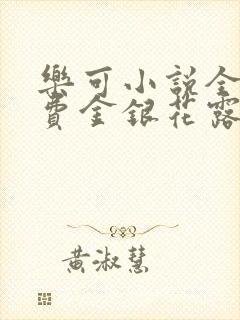 樂可小說全
費金銀花露
黃淑慧